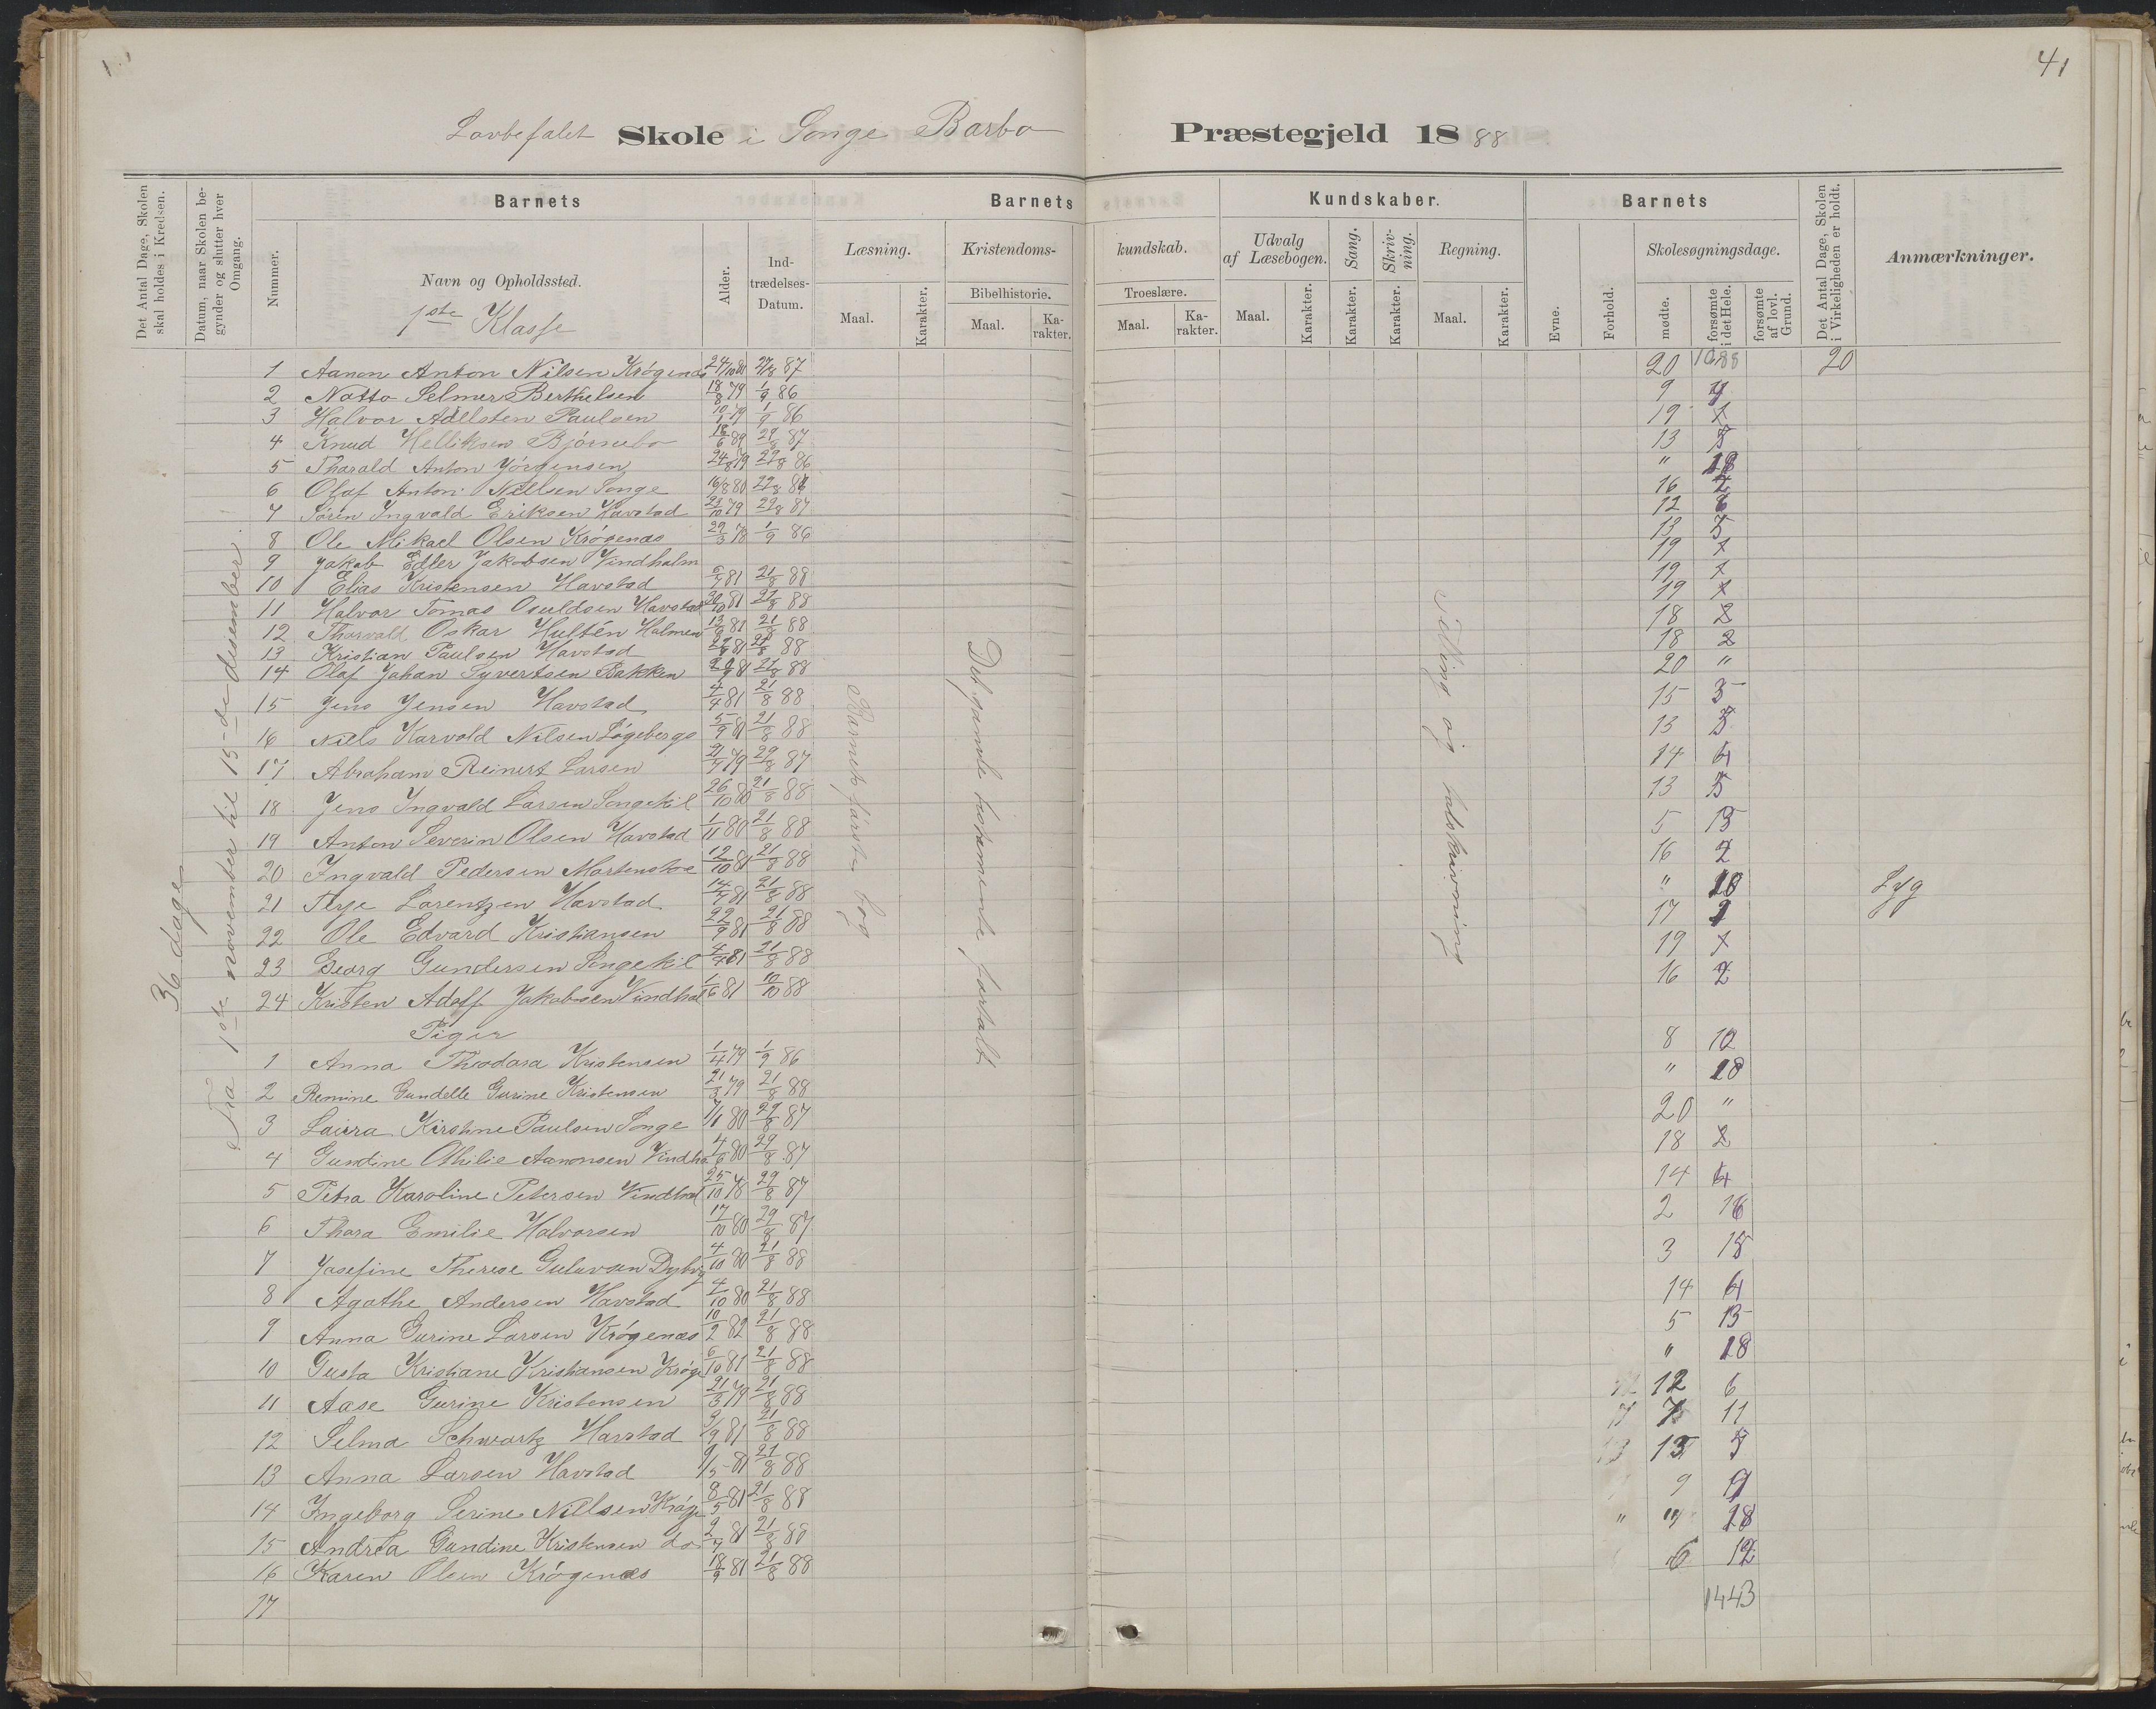 41
Lovbefalet Skole i Songe Barbo Præstegjeld 1888
Det Antal Dage, Skolen skal holdes i Kredsen.
Datum, naar Skolen begynder og slutter hver Omgang.
Barnets
Barnets
Kundskaber.
Barnets
Det Antal Dage, Skolen i Virkeligheden er holdt.
Anmærkninger.
Nummer.
Navn og Opholdssted.
1ste Klasse
Alder.
Indtrædelses-Datum.
Læsning.
Maal.
Karakter.
Kristendoms-
kundskab.
Bibelhistorie.
Maal.
Karakter.
Troeslære.
Maal.
Karakter.
Udvalg af Læsebogen.
Maal.
Karakter.
Sang.
Karakter.
Skrivning.
Karakter.
Regning.
Maal.
Karakter.
Evne.
Forhold.
Skolesøgningsdage.
mødte.
forsømte i det Hele.
forsømte af lovl. Grund.
36 dage
Fra 1ste november til 15-de disember
Barnets første bog
Det gamle testamente fortalt
Telling og talskrivning
1 Aanon Anton Nilsen Krøgenæs 24/10 81 27/8 87 20 20
2 Notto Selmer Berthelsen 18/8 79 1/9 86 9
3 Halvor Adelsten Paulsen 79 1/9 86 19
4 Knud Helliksen Bjørnebo 29/8 87 13
5 Tharald Anton Jørgensen 24/8 79 29/8 86 "
6 Olaf Anton Nillsen Songe 16/8 80 16
7 Sørin Ingvald Eriksen Havstad 23/10 79 29/8 87 12
8 Ole Mikael Olsen Krøgenæs 29/3 78 1/9 86 13
9 Jakob Edler Jakobsen Vindholm 19
10 Elias Kristensen Havstad 81 21/8 88 19
11 Halvor Tomas Osuldsen Havstad 20/10 81 21/8 88 19
12 Thorvald Oskar Hultén Holmen 81 21/8 88 18 2
13 Kristian Paulsen Havstad 81 21/8 88 18 2
14 Olaf Johan Syvertsen Bakken 81 21/8 88 20 "
15 Jens Jensen Havstad 4/4 81 21/8 88 15 3
16 Niels Karvald Nilsen Løgebergs 5/9 81 21/8 88 13
17 Abraham Reinert Larsen 79 29/8 87 14 4
18 Jens Ingvald Larsen Songekil 26/10 80 21/8 88 13
19 Anton Severin Olsen Havstad 1/11 80 21/8 88 5 13
20 Ingvald Pedersen Mortensbo 12/10 81 21/8 88 16 2
21 Terje Lorentzen Havstad 81 21/8 88 " 18 Lyg
22 Ole Edvard Kristiansen 22/9 81 21/8 88 17
23 Georg Gundersen Songekil 81 21/8 88 19
24 Kristen Adolf Jakobsen Vindhol 1/6 81 10/10 88 16 2
Piger
1 Anna Theodora Kristensen 1/4 79 1/9 86 8 10
2 Remine Gundelle Gurine Kristensen 21/3 79 21/8 88 " 18
3 Laura Kirstine Paulsen Songe 80 29/8 87 20 "
4 Gundine Othilie Aanonsen Vindho 4/6 80 29/8 87 18 2
5 Petra Karoline Petersen Vindhol 25/10 78 29/8 87 14 4
6 Thora Emilie Halvorsen 17/10 80 29/8 87 2 16
7 Josefine Therese Guluvsen Dybvig 4/10 80 21/8 88 3 15
8 Agathe Andersen Havstad 4/10 80 21/8 88 14 4
9 Anna Gurine Larsen Krøgenæs 10/2 82 21/8 88 5 13
10 Gusta Kristiane Kristiansen Krøge 6/10 81 21/8 88 " 18
11 Aase Gurine Kristensen 21/3 79 21/8 88 12 6
12 Selma Schwartz Havstad 9/9 81 21/8 88 7 11
13 Anna Larsen Havstad 81 21/8 88 13 5
14 Ingeborg Serine Nillsen Krøge 8/5 81 21/8 88 9 9
15 Andrea Gundine Kristensen do 81 21/8 88 " " 18
16 Karen Olsen Krøgenæs 18/9 81 21/8 88 6 12
17
1443